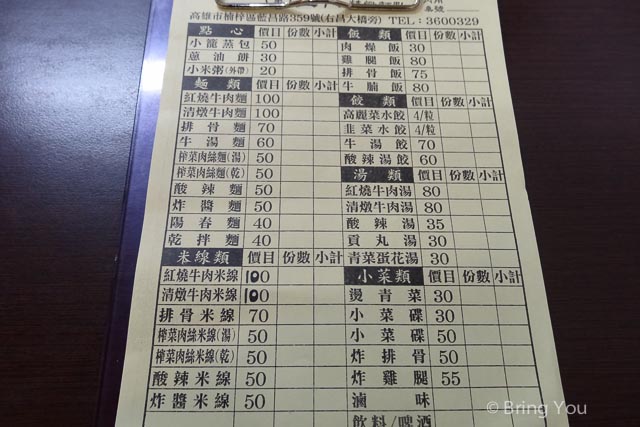 高雄市楠梓區藍昌路359號(右昌大橋旁) TEL:3600329
點心 價目 份數 小計
小籠蒸包 50
蔥油餅 30
小米粥(外帶) 20
麵類 價目 份數 小計
紅燒牛肉麵 100
清燉牛肉麵 100
排骨麵 70
牛湯麵 60
榨菜肉絲麵(湯) 50
榨菜肉絲麵(乾) 50
酸辣麵 50
炸醬麵 50
陽春麵 40
乾拌麵 40
米線類 價目 份數 小計
紅燒牛肉米線 100
清燉牛肉米線 100
排骨米線 70
榨菜肉絲米線(湯) 50
榨菜肉絲米線(乾) 50
酸辣米線 50
炸醬米線 50
飯類 價目 份數 小計
肉燥飯 30
雞腿飯 80
排骨飯 75
牛腩飯 80
餃類 價目 份數 小計
高麗菜水餃 4/粒
韭菜水餃 4/粒
牛湯餃 70
酸辣湯餃 60
湯類 價目 份數 小計
紅燒牛肉湯 80
清燉牛肉湯 80
酸辣湯 35
貢丸湯 30
青菜蛋花湯 30
小菜類 價目 份數 小計
燙青菜 30
小菜碟 30
小菜碟 50
炸排骨 50
炸雞腿 55
滷味
飲料/啤酒
© Bring You